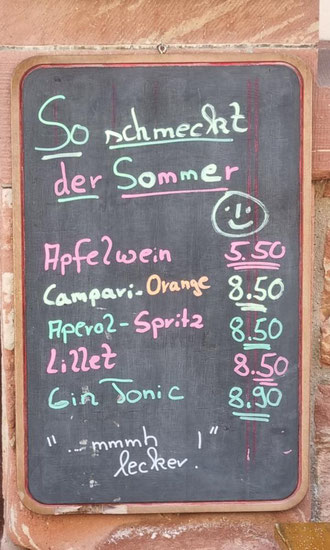 So schmeckt
der Sommer
Apfelwein 5.50
Campari-Orange 8.50
Aperol-Spritz 8.50
Lillet 8.50
Gin Tonic 8.90
"...mmmh !"
lecker.